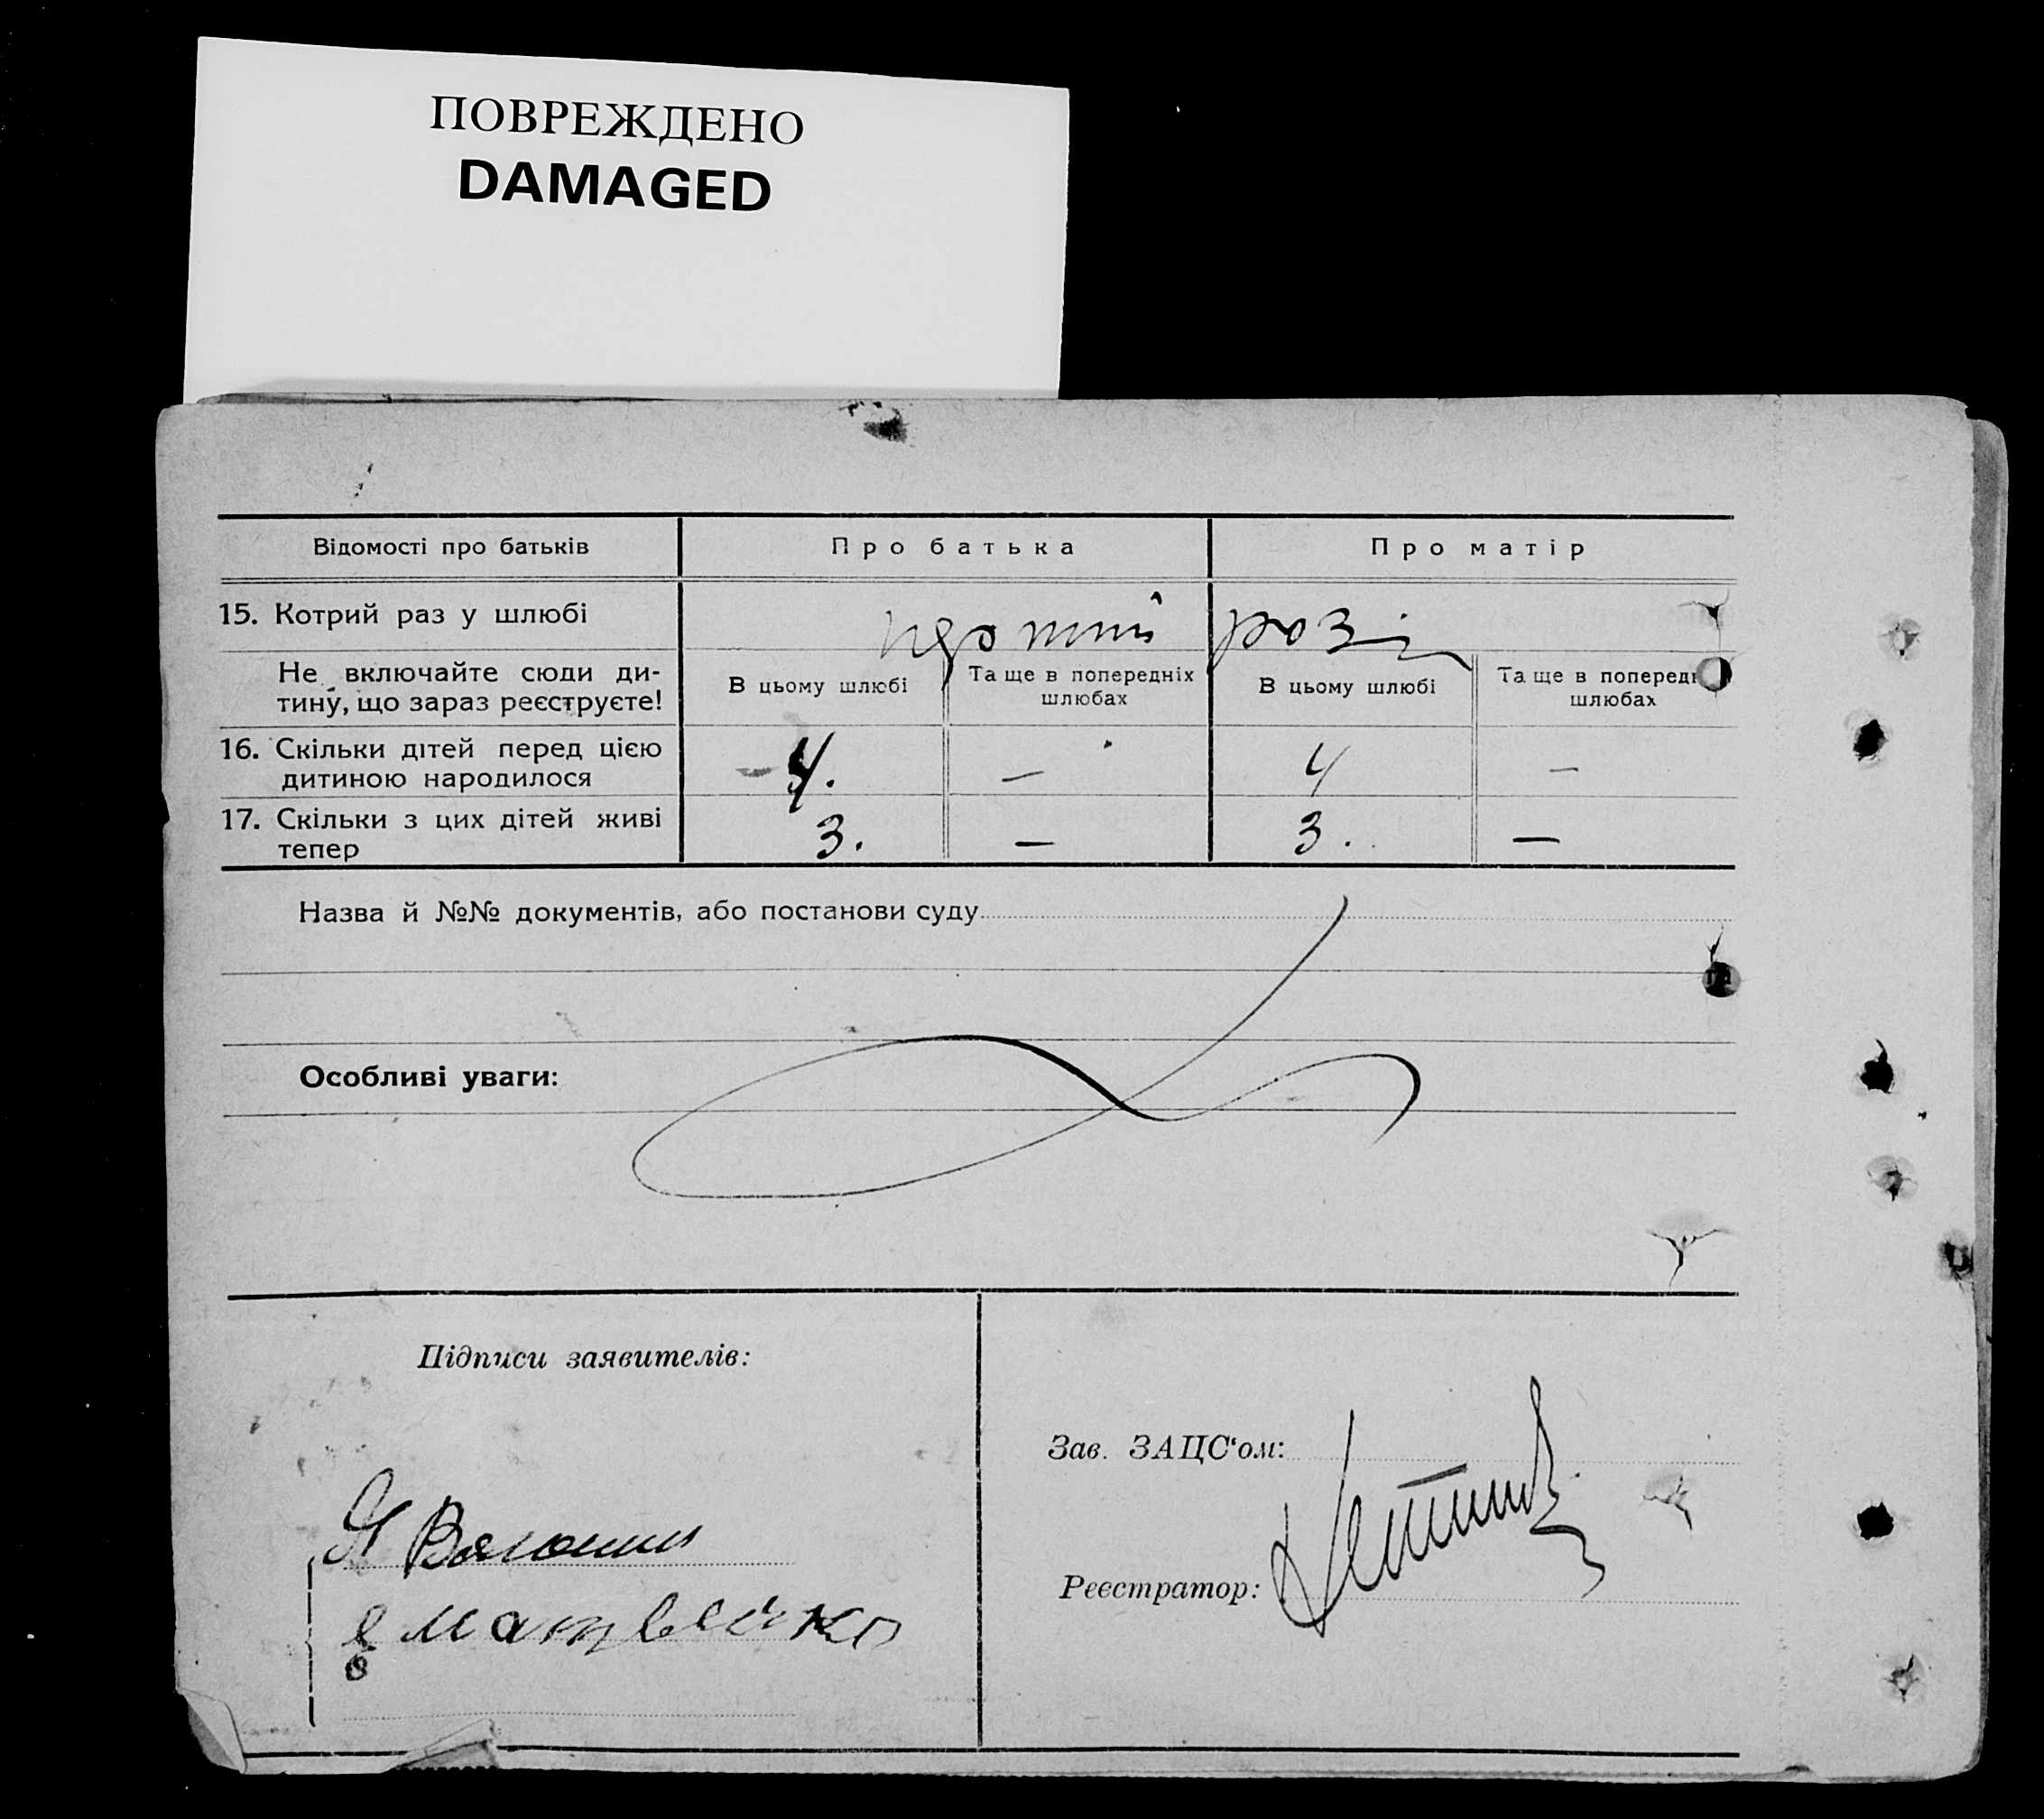 ПОВРЕЖДЕНО
DAMAGED
Відомості про батьків
Про батька
Про матір
15. Котрий раз у шлюбі
Не включайте сюди ди-
тину, що зараз реєструєте!
В цьому шлюбі
Та ще в попередніх
шлюбах
В цьому шлюбі
Та ще в
шлюбах
16. Скільки дітей перед цією
дитиною народилося
4.
—
4
—
17. Скільки з цих дітей живі
тепер
3.
—
3.
—
Назва й №№ документів, або постанови суду
Особливі уваги:
Підписи заявителів:
Зав. ЗАЦС‘ом:
Реєстратор: